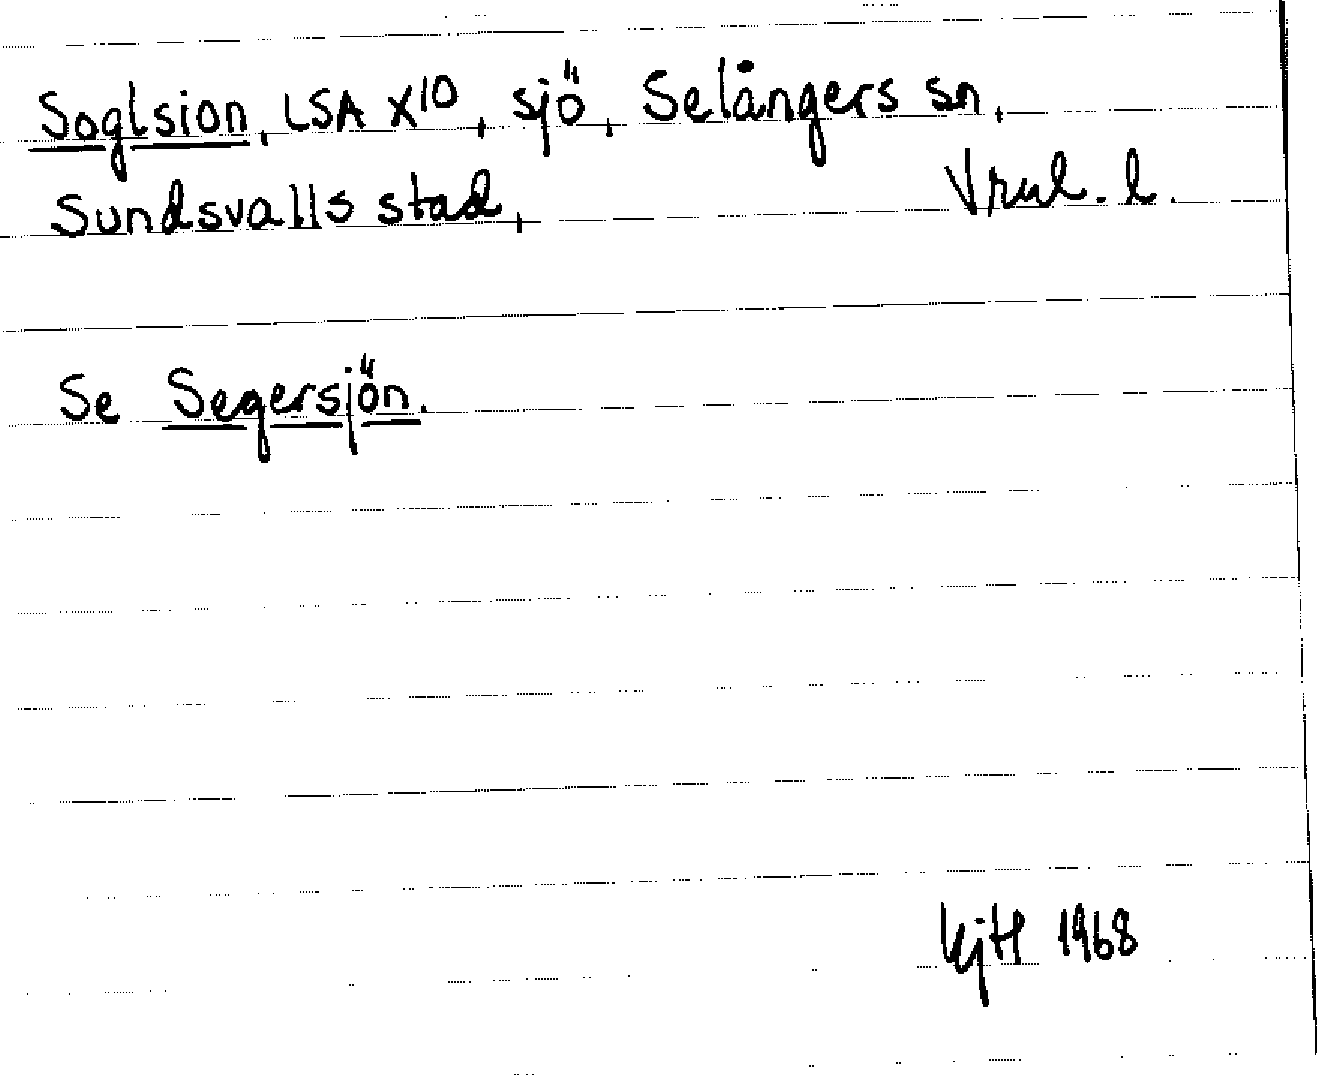 Soglsion, LSA X10, sjö, Selångers sn,
Sundsvalls stad,
Se Segersjön.
KjH 1968